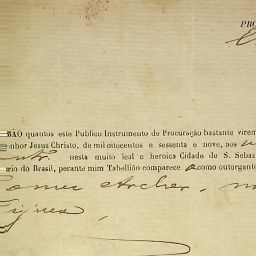 PRO
BÃO quantos este Publico Instrumento de Procuração bastante virem
enhor Jesus Christo, de mil oitocentos e sessenta e nove, aos
nesta muito leal e heroica Cidade de S. Sebas
erio do Brasil, perante mim Tabellião comparece o como outorgante
Gomes Archer,
Tijuca